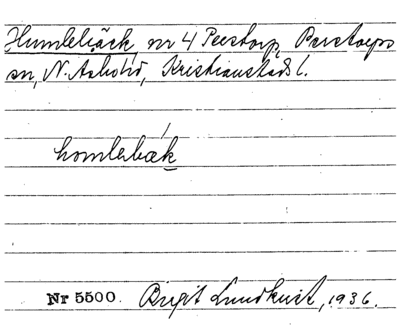 Humlebäck, nr 4 Perstorp, Perstorps
sn, N. Åsbo hd, Kristianstads l.
homlebæk
Nr 5500. Birgit Lundkvist, 1936.